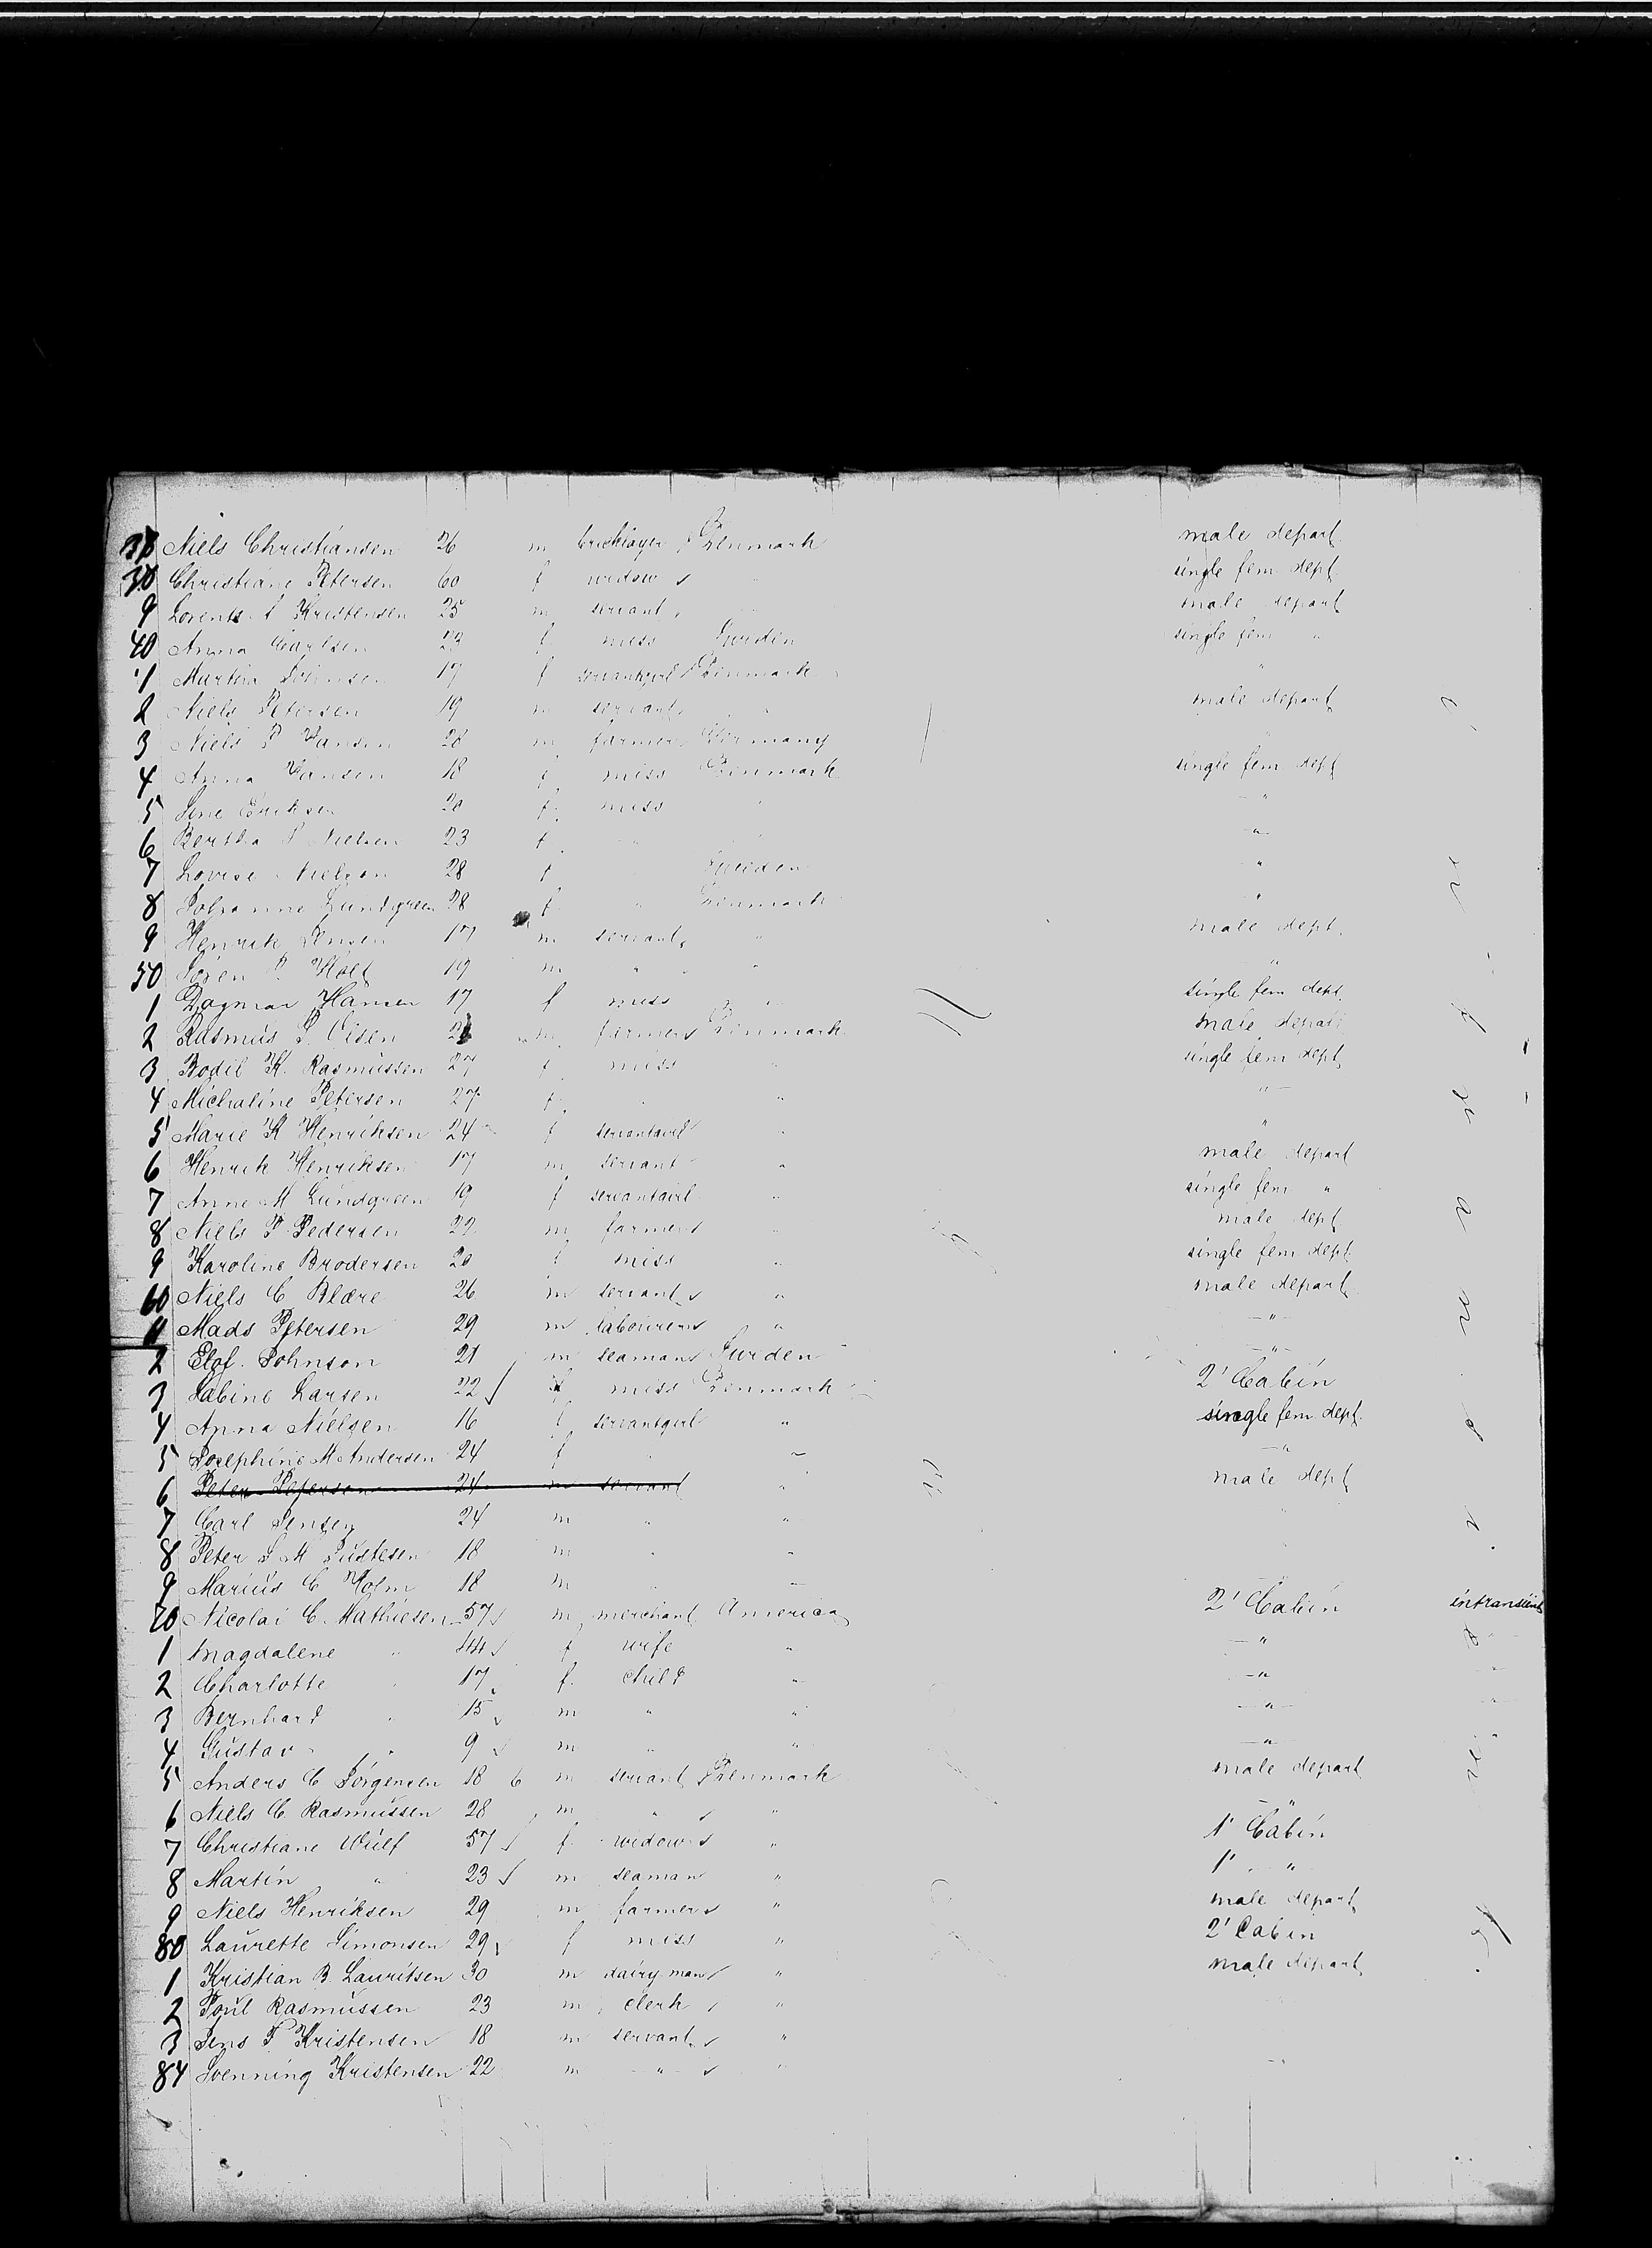 38 Niels Christiansen 26 m bricklayer Denmark male depart
30 Christiane Petersen 60 f widow " single fem dept
9 Lorents Kristensen 25 m servant " male depart
40 Anna Carlsen 23 f miss Sweden single fem "
1 Martha Sörensen 17 f servantgirl Denmark "
2 Niels Petersen 19 m servant " male depart
3 Niels P Hansen 28 m farmer Germany "
4 Anna Hansen 18 f miss Denmark single fem dept
5 Sine Eriksen 20 f miss " "
6 Bertha Nielsen 23 f " " "
7 Lovise Nielson 28 f " Sweden "
8 Johanne Lundgreen 28 f " Denmark "
9 Henrik Jensen 17 m servant " male dept.
50 Sören P. Holt 19 m " " "
1 Dagmar Hansen 17 f miss " single fem dept.
2 Rasmus P. Olsen m farmer Denmark male depart
3 Bodil K. Rasmussen 27 f miss " single fem dept
4 Michaline Petersen 27 f " " "
5 Marie K Henriksen 24 f servantgirl " "
6 Henrik Henriksen 17 m servant " male depart
7 Anne M Lundgreen 19 f servantgirl " single fem "
8 Niels P Pedersen 22 m farmer " male dept
9 Karoline Brodersen 20 f miss " single fem dept
60 Niels C Blære 26 m servant " male depart
Mads Petersen 29 m labourer " "
2 Elof Johnson 21 m seaman Sweden "
3 Sabine Larsen 22 f miss Denmark 2' Cabin
4 Anna Nielsen 16 f servantgirl " single fem dept.
5 Josephine M Andersen 24 f " " "
6 Peter Petersen 24 m servant " male dept
7 Carl Jensen 24 m " " "
8 Peter S M Justesen 18 m " "
9 Marius C Holm 18 m " "
70 Nicolai C. Mathiesen 57 m merchant America 2' Cabin intransient
1 Magdalene " 44 f wife " "
2 Charlotte " 17 f. child " "
3 Bernhard " 15 m " " "
4 Gustav " 9 m " " "
5 Anders C Jörgensen 18 6 m servant Denmark male depart
6 Niels C. Rasmussen 28 m " " "
7 Christiane Wulf 57 f. widow " 1' Cabin
8 Martin " 23 m seaman " 1' "
9 Niels Henriksen 29 m farmer " male depart
80 Laurette Simonsen 29 f miss " 2' Cabin
1 Kristian B. Lauritsen 30 m dairy man " male depart
2 Poul Rasmussen 23 m clerk "
3 Jens F Kristensen 18 m servant "
84 Svenning Kristensen 22 m " "